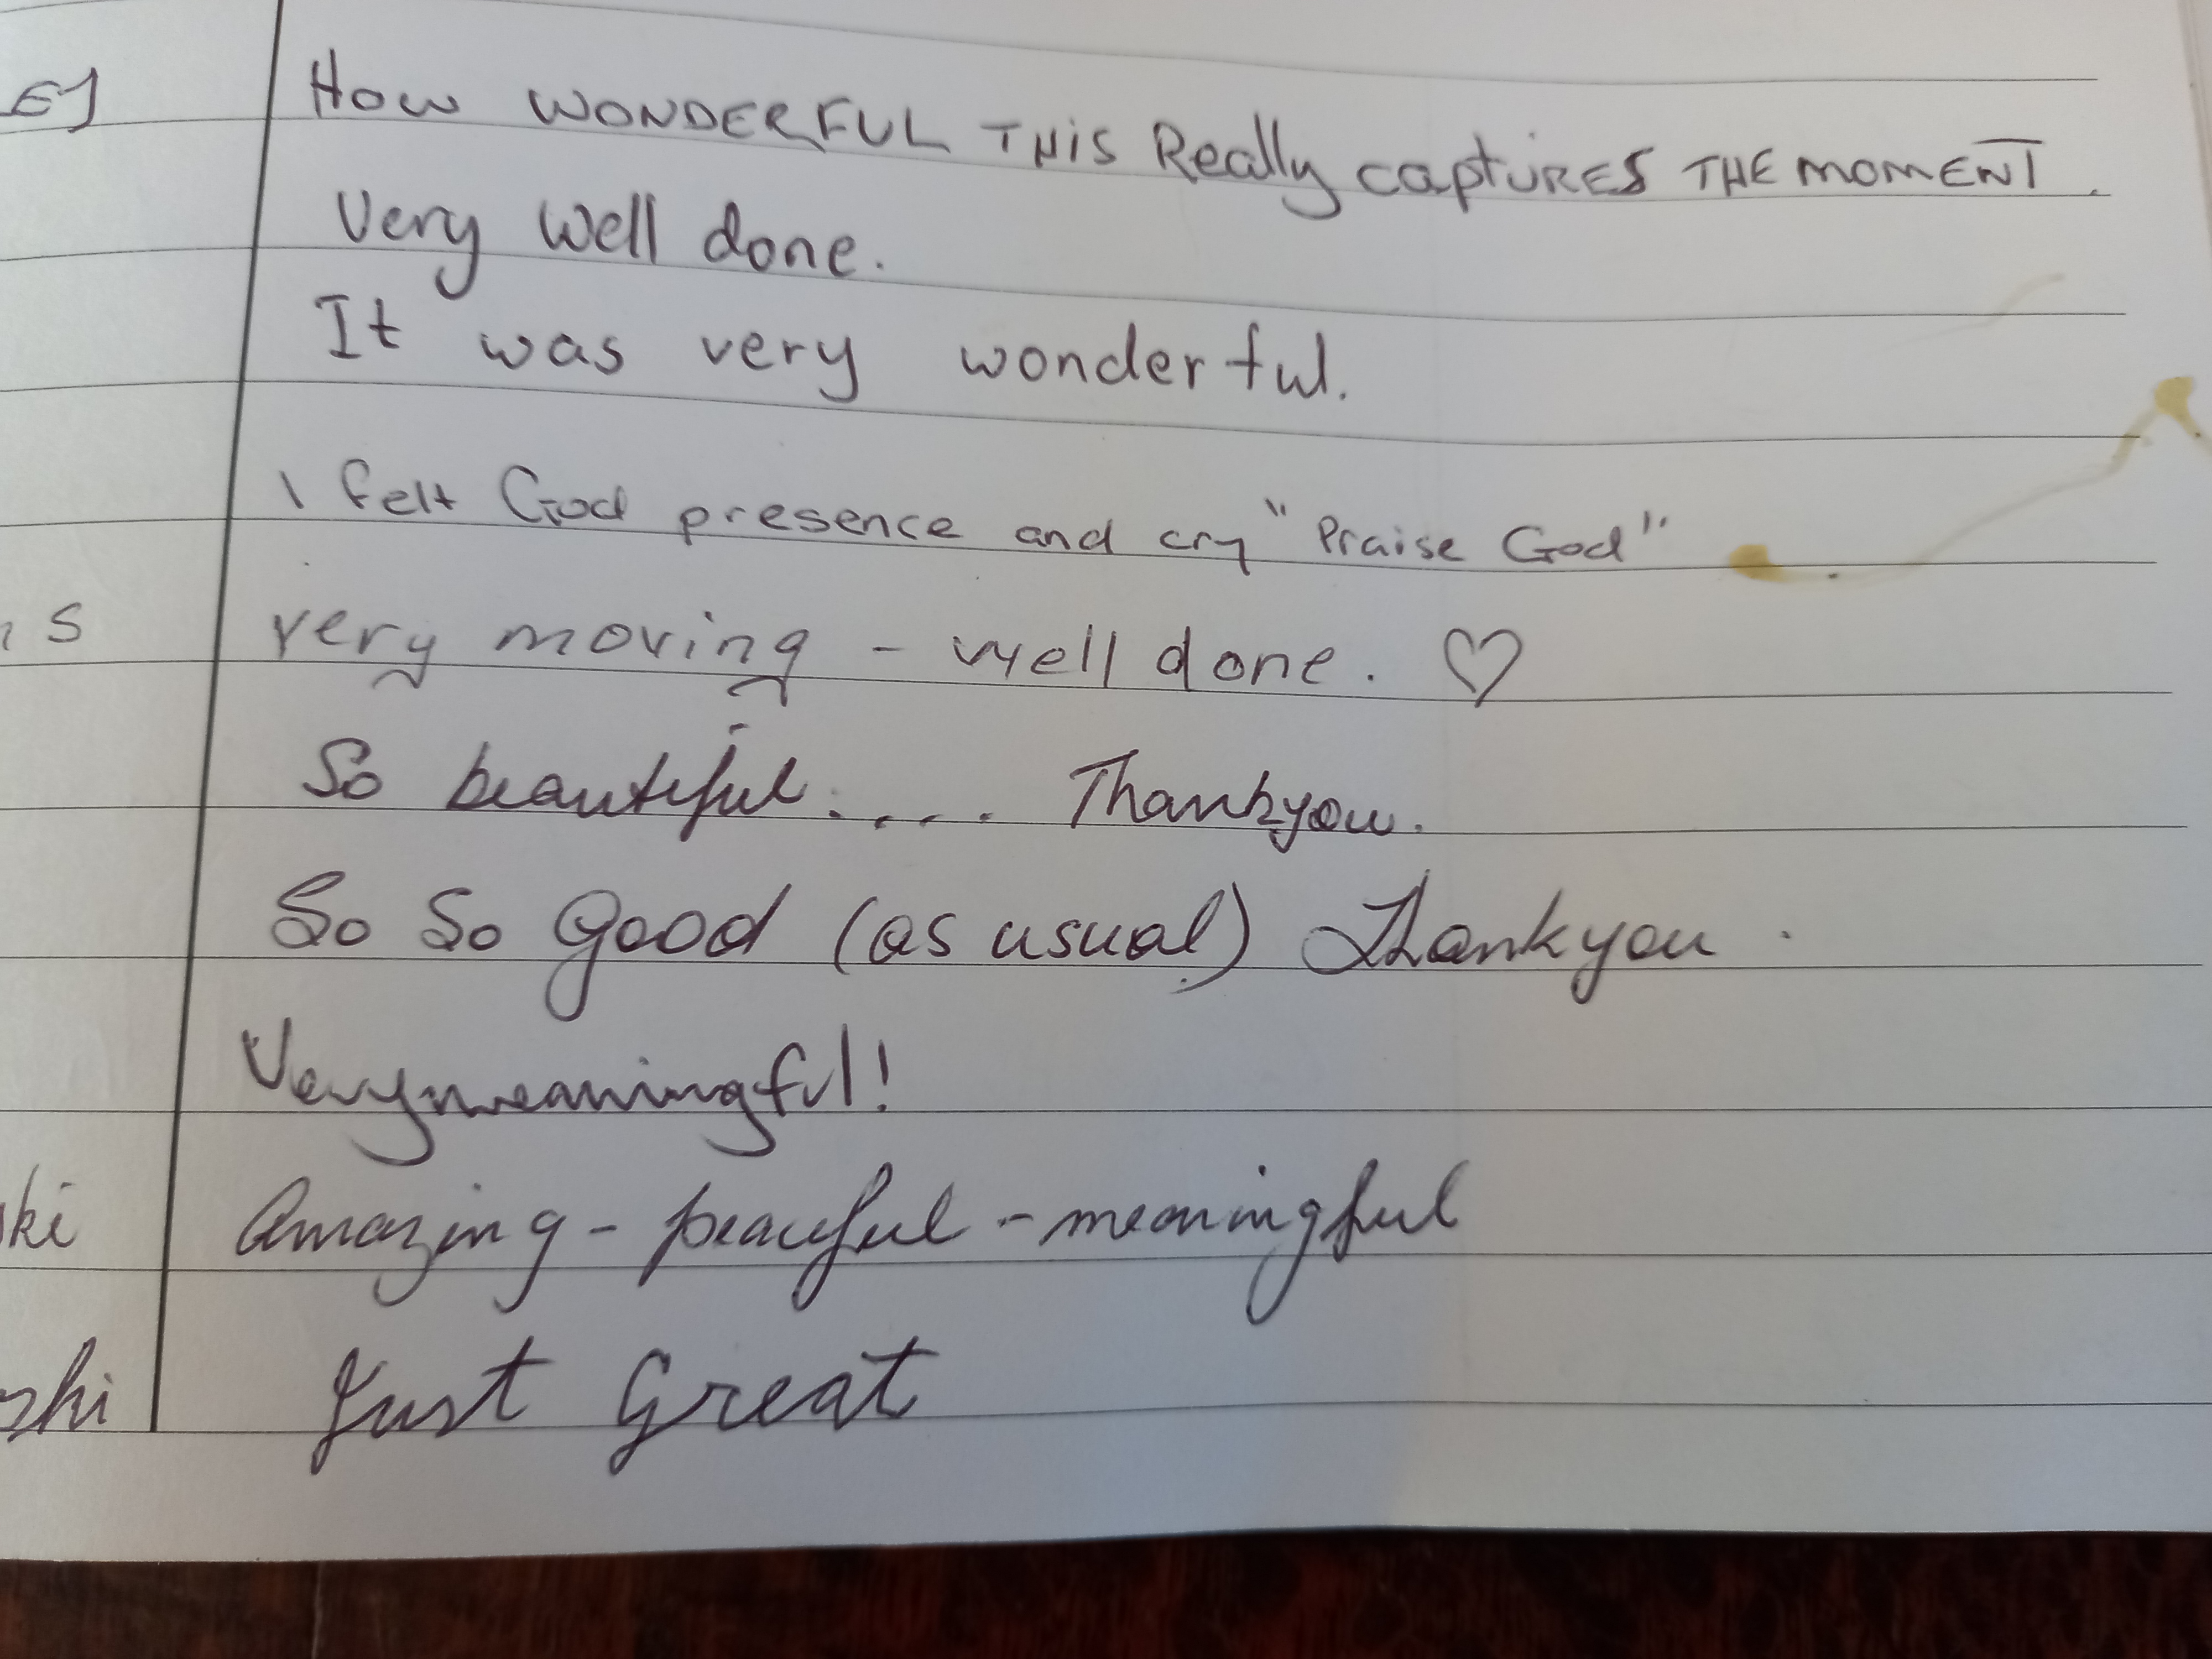 EJ How WONDERFUL THiS Really captURES THE MOMENT.
Very Well done.
It was very wonderful.
I felt God presence and cry "Praise God"
s very moving - well done. ♡
So beautiful..... Thankyou.
So So Good (as usual) Thankyou.
Very meaningful!
ki Amazing - peaceful - meaningful
ski Just Great